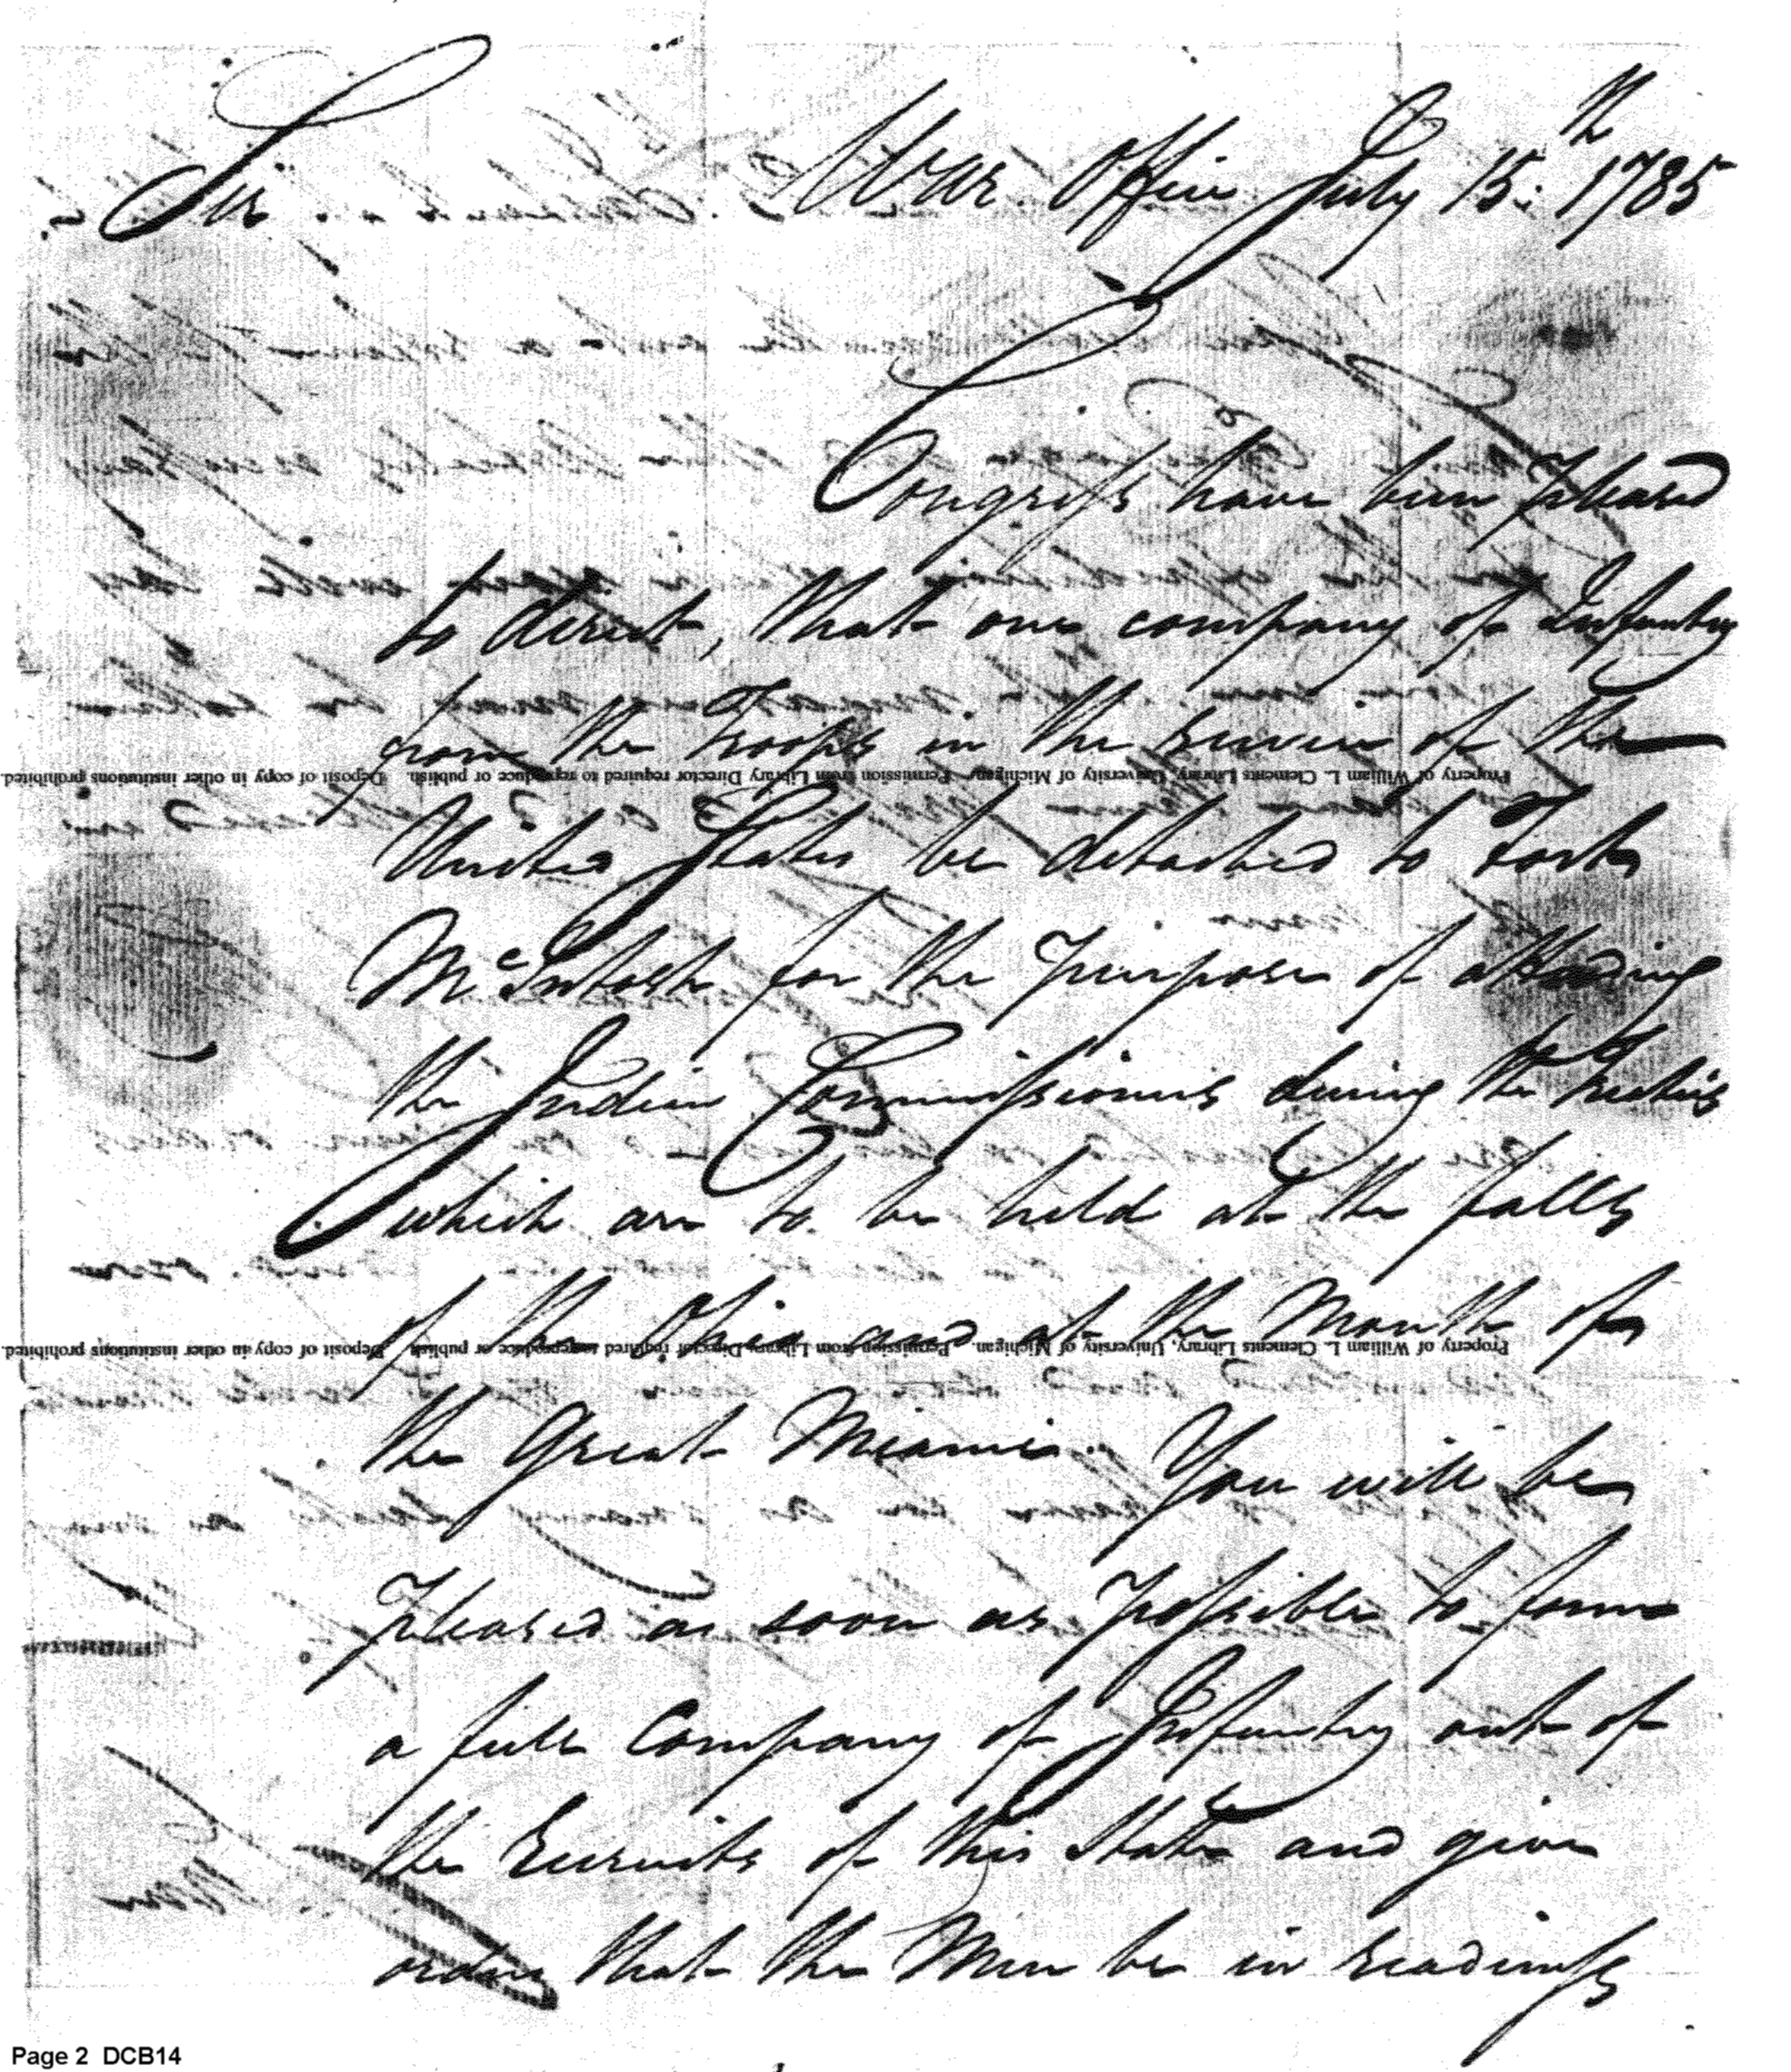 Sir War Office July 15:th 1785
Congress have been pleased
to direct, that one company of Infantry
from the Troops in the service of the
United States be detached to Fort
McIntosh for the Purpose of attending
the Indian Commissioners during the treaties
which are to be held at the falls
of the Ohio and at the Mouth of
the Great Miami. You will be
pleased as soon as possible to form
a full Company of Infantry out of
the Recruits of this State and give
orders that the Men be in readiness
Property of William L. Clements Library, University of Michigan. Permission from Library Director required to reproduce or publish. Deposit of copy in other institutions prohibited.
Property of William L. Clements Library, University of Michigan. Permission from Library Director required to reproduce or publish. Deposit of copy in other institutions prohibited.
Page 2 DCB14